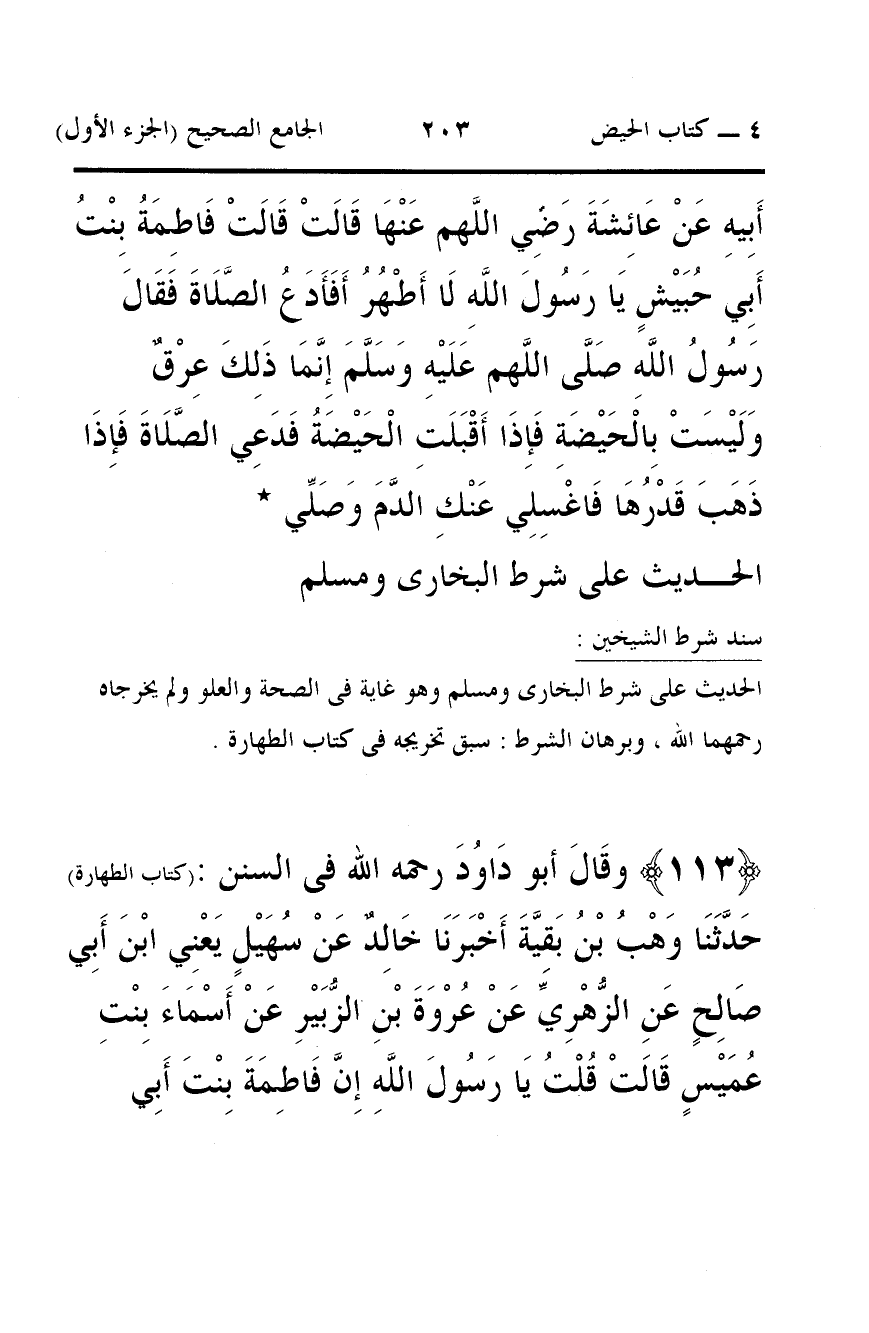 ٤ ــ كتاب الحيض ٢٠٣ الجامع الصحيح (الجزء الأول)
أَبِيهِ عَنْ عَائِشَةَ رَضِي اللَّهم عَنْهَا قَالَتْ قَالَتْ فَاطِمَةُ بِنْتُ
أَبِي حُبَيْشٍ يَا رَسُولَ اللَّهِ لَا أَطْهُرُ أَفَأَدَعُ الصَّلَاةَ فَقَالَ
رَسُولُ اللَّهِ صَلَّى اللَّهم عَلَيْهِ وَسَلَّمَ إِنَّمَا ذَلِكَ عِرْقٌ
وَلَيْسَتْ بِالْحَيْضَةِ فَإِذَا أَقْبَلَتِ الْحَيْضَةُ فَدَعِي الصَّلَاةَ فَإِذَا
ذَهَبَ قَدْرُهَا فَاغْسِلِي عَنْكِ الدَّمَ وَصَلِّي *
الحـــديث على شرط البخارى ومسلم
سند شرط الشيخين :
الحديث على شرط البخارى ومسلم وهو غاية فى الصحة والعلو ولم يخرجاه
رحمهما الله ، وبرهان الشرط : سبق تخريجه فى كتاب الطهارة .
﴿١١٣﴾ وقَالَ أبو دَاوُدَ رحمه الله فى السنن :(كتاب الطهارة)
حَدَّثَنَا وَهْبُ بْنُ بَقِيَّةَ أَخْبَرَنَا خَالِدٌ عَنْ سُهَيْلٍ يَعْنِي ابْنَ أَبِي
صَالِحٍ عَنِ الزُّهْرِيِّ عَنْ عُرْوَةَ بْنِ الزُّبَيْرِ عَنْ أَسْمَاءَ بِنْتِ
عُمَيْسٍ قَالَتْ قُلْتُ يَا رَسُولَ اللَّهِ إِنَّ فَاطِمَةَ بِنْتَ أَبِي